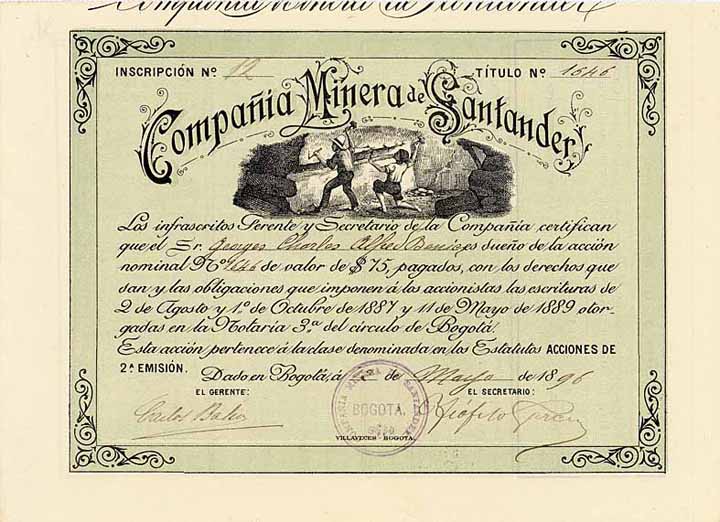 Compañía Minera de Santander
INSCRIPCIÓN Nº 12 TÍTULO Nº 1646
Compañía Minera de Santander
Los infrascritos Gerente y Secretario de la Compañía certifican
que el Sr. Georges Charles es dueño de la acción
nominal Nº 1646 de valor de $ 75, pagados, con los derechos que
dan y las obligaciones que imponen á los accionistas las escrituras de
2 de Agosto y 1º de Octubre de 1887 y 11 de Mayo de 1889 otor-
gadas en la Notaría 3ª del círculo de Bogotá.
Esta acción pertenece á la clase denominada en los Estatutos ACCIONES DE
2ª EMISIÓN. Dado en Bogotá, á 2 de Mayo de 1896
EL GERENTE: EL SECRETARIO:
COMPAÑIA MINERA DE SANTANDER
BOGOTA.
Carlos
VILLAVECES - BOGOTA.